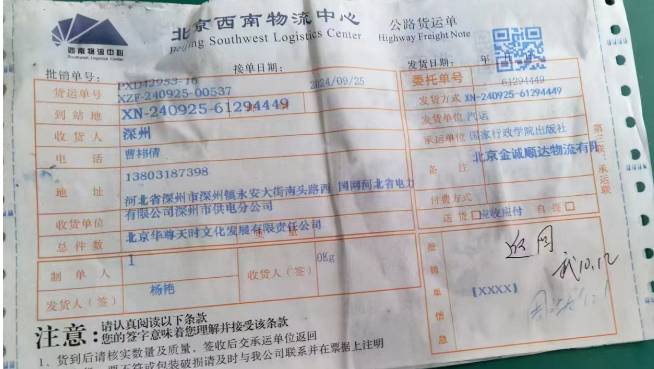 西南物流中心
Southwest Logistics Center
北京西南物流中心
Beijing Southwest Logistics Center
公路货运单
Highway Freight Note
批销单号：
PXD42953-16
接单日期：
2024/09/25
发货日期： 年
货运单号
XZF-240925-00537
委托单号
61294449
到站地
XN-240925-61294449
发货方式
XN-240925-61294449
收货人
深州
发货单位
汽运
电话
曹祎倩
承运单位
国家行政学院出版社
13803187398
备注
北京金诚顺达物流有限
地址
河北省深州市深州镇永安大街南头路西 国网河北省电力
有限公司深州市供电分公司
付费方式
收货单位
北京华尊天时文化发展有限责任公司
送货
应收应付
自提
总件数
1
0Kg
制单人
杨艳
收货人（签）
发货人（签）
批销单信息
【XXXX】
返回
10.12
第二联：承运联
注意：
请认真阅读以下条款
您的签字意味着您理解并接受该条款
1、货到后请核实数量及质量，签收后交承运单位返回
要不符或包装破损请及时与我公司联系并在票据上注明